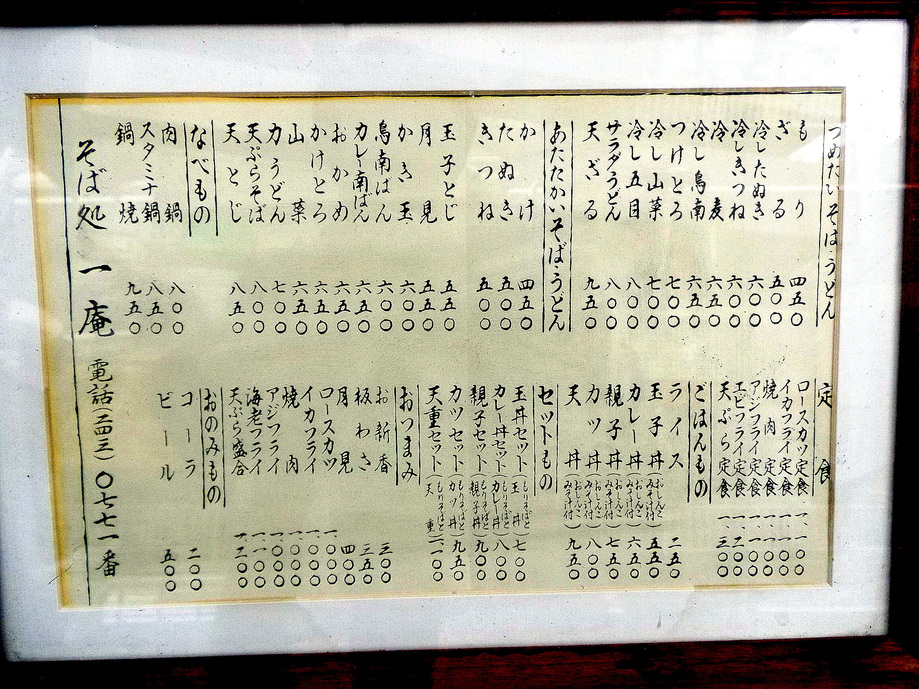 つめたいそば・うどん
もり 四五〇
ざる 五〇〇
冷したぬき 六〇〇
冷しきつね 六〇〇
冷麦 六五〇
冷し鳥南 六五〇
つけとろ 七〇〇
冷し山菜 七〇〇
冷し五目 八〇〇
サラダうどん 八〇〇
天ざる 九五〇
あたたかいそば・うどん
かけ 四五〇
たぬき 五〇〇
きつね 五〇〇
玉子とじ 五五〇
月見 五五〇
かき玉 六〇〇
鳥南ばん 六〇〇
カレー南ばん 六五〇
おかめ 六五〇
かけとろ 六五〇
山菜 六五〇
力うどん 七〇〇
天ぷらそば 八〇〇
天とじ 八五〇
なべもの
肉鍋 八〇〇
スタミナ鍋 八五〇
鍋焼 九五〇
定食
ロースカツ定食 一、一〇〇
イカフライ定食 一、〇〇〇
焼肉定食 一、〇〇〇
アジフライ定食 一、〇〇〇
エビフライ定食 一、二〇〇
天ぷら定食 一、三〇〇
ごはんもの
ライス 二五〇
玉子丼(おしんこみそ汁付) 五五〇
カレー丼(おしんこみそ汁付) 六五〇
親子丼(おしんこみそ汁付) 七五〇
カツ丼(おしんこみそ汁付) 八〇〇
天丼(おしんこみそ汁付) 九五〇
セットもの
玉丼セット(もりそばと玉丼) 七〇〇
カレー丼セット(もりそばとカレー丼) 八〇〇
親子セット(もりそばと親子丼) 九〇〇
カツセット(もりそばとカツ丼) 九五〇
天重セット(もりそばと天重) 一、一〇〇
おつまみ
お新香 三〇〇
板わさ 三五〇
月見 四〇〇
ロースカツ 一、〇〇〇
イカフライ 一、〇〇〇
焼肉 一、〇〇〇
アジフライ 一、〇〇〇
海老フライ 一、一〇〇
天ぷら盛合 一、二〇〇
おのみもの
コーラ 二〇〇
ビール 五〇〇
そば処 一庵 電話(二四三)〇七七一番